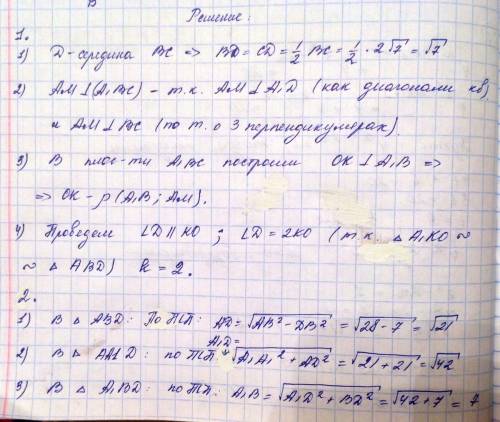 В
Решение:
1.
1) D - середина BC => BD = CD = 1/2 BC = 1/2 · 2√7 = √7
2) AM ⊥ (A₁BC) - т.к. AM ⊥ A₁D (как диагонали кв)
и AM ⊥ BC (по т. о 3 перпендикулярах).
3) В плос-ти A₁BC построим OK ⊥ A₁B =>
=> OK - ρ (A₁B; AM).
4) Проведем LD || KO ; LD = 2KO (т.к. △ A₁KO ~
~ △ ABD) k = 2.
2.
1) В △ ABD: По ТП: AD = √AB² - DB² = √28 - 7 = √21
A₁D =
2) В △ AA1D: по ТП √A₁A₁² + AD² = √21 + 21 = √42
3) В △ A₁BD: по ТП: A₁B = √A₁D² + BD² = √42 + 7 = 7